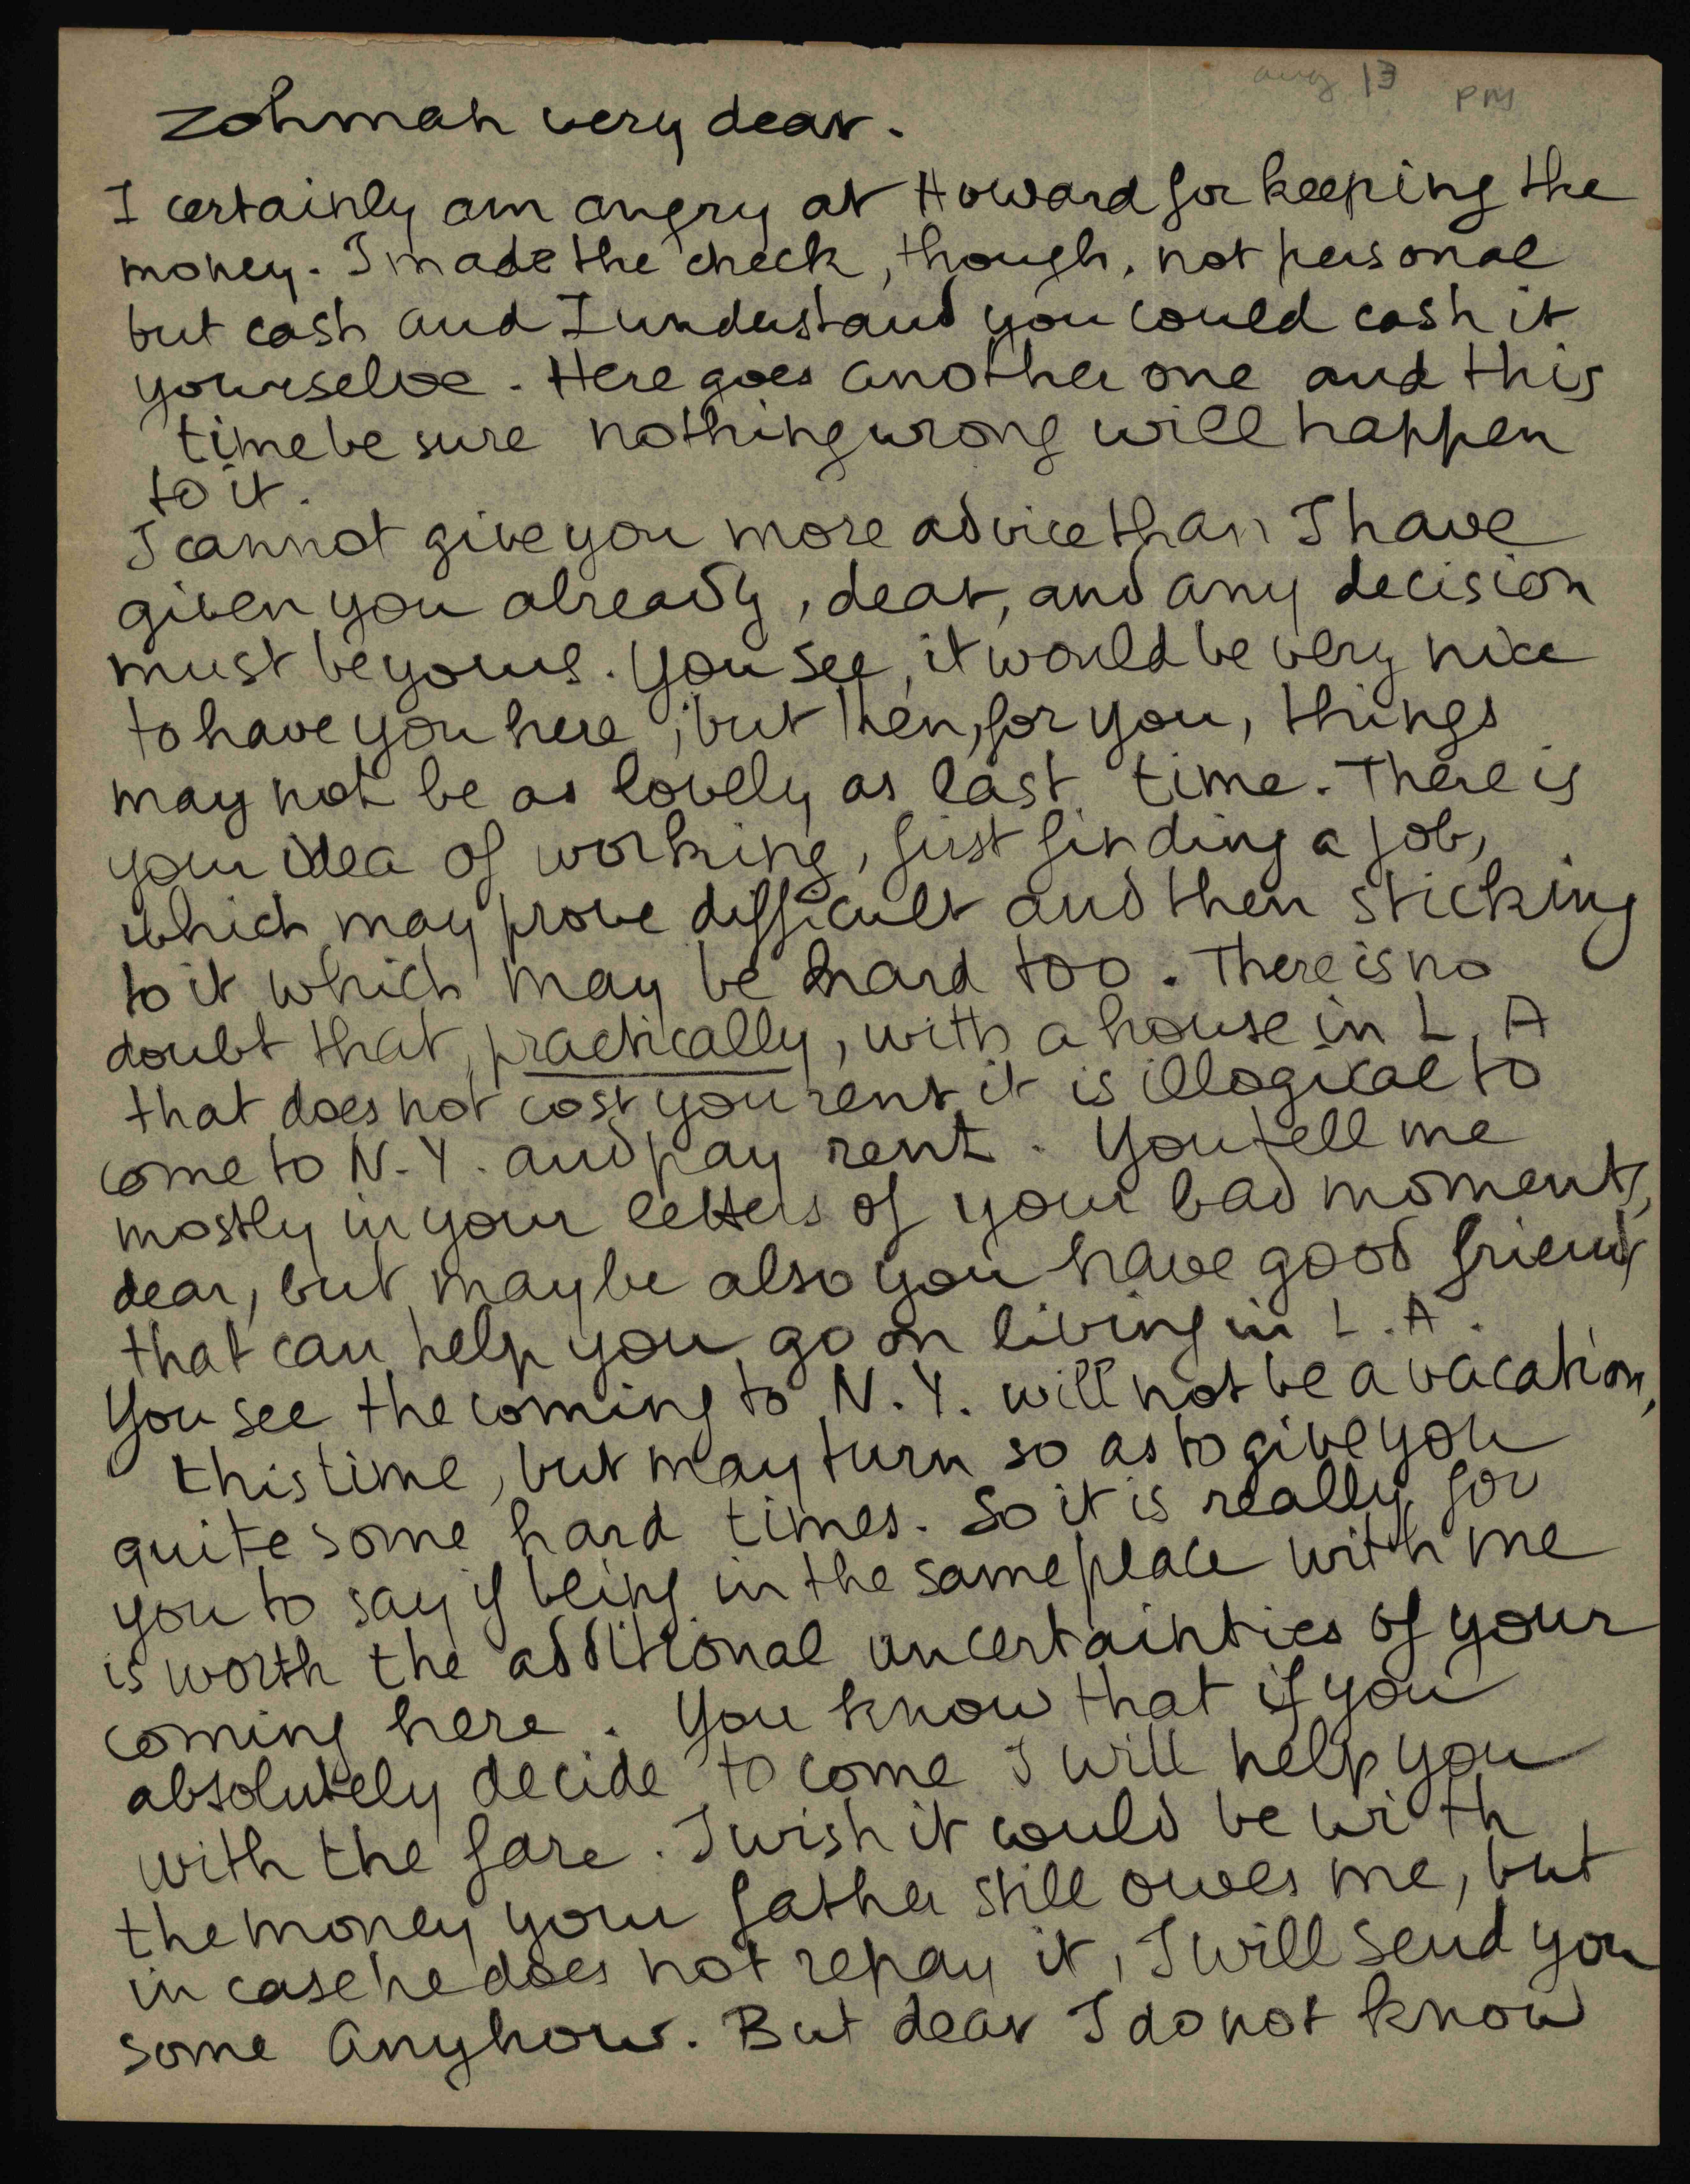 aug 13 PM
Zohmah very dear.
I certainly am angry at Howard for keeping the
money. I made the check, though, not personal
but cash and I understand you could cash it
yourselve. Here goes another one and this
time be sure nothing wrong will happen
to it.
I cannot give you more advice than I have
given you already, dear, and any decision
must be yours. You see, it would be very nice
to have you here, but then, for you, things
may not be as lovely as last time. There is
your idea of working, first finding a job,
which may prove difficult and then sticking
to it which may be hard too. There is no
doubt that, practically, with a house in L.A
that does not cost you rent, it is illogical to
come to N.Y. and pay rent. You tell me
mostly in your letters of your bad moments,
dear, but maybe also you have good friends
that can help you go on living in L.A.
You see the coming to N.Y. will not be a vacation,
this time, but may turn so as to give you
quite some hard times. So it is really for
you to say if being in the same place with me
is worth the additional uncertainties of your
coming here. You know that if you
absolutely decide to come I will help you
with the fare. I wish it could be with
the money your father still owes me, but
in case he does not repay it, I will send you
some anyhow. But dear I do not know